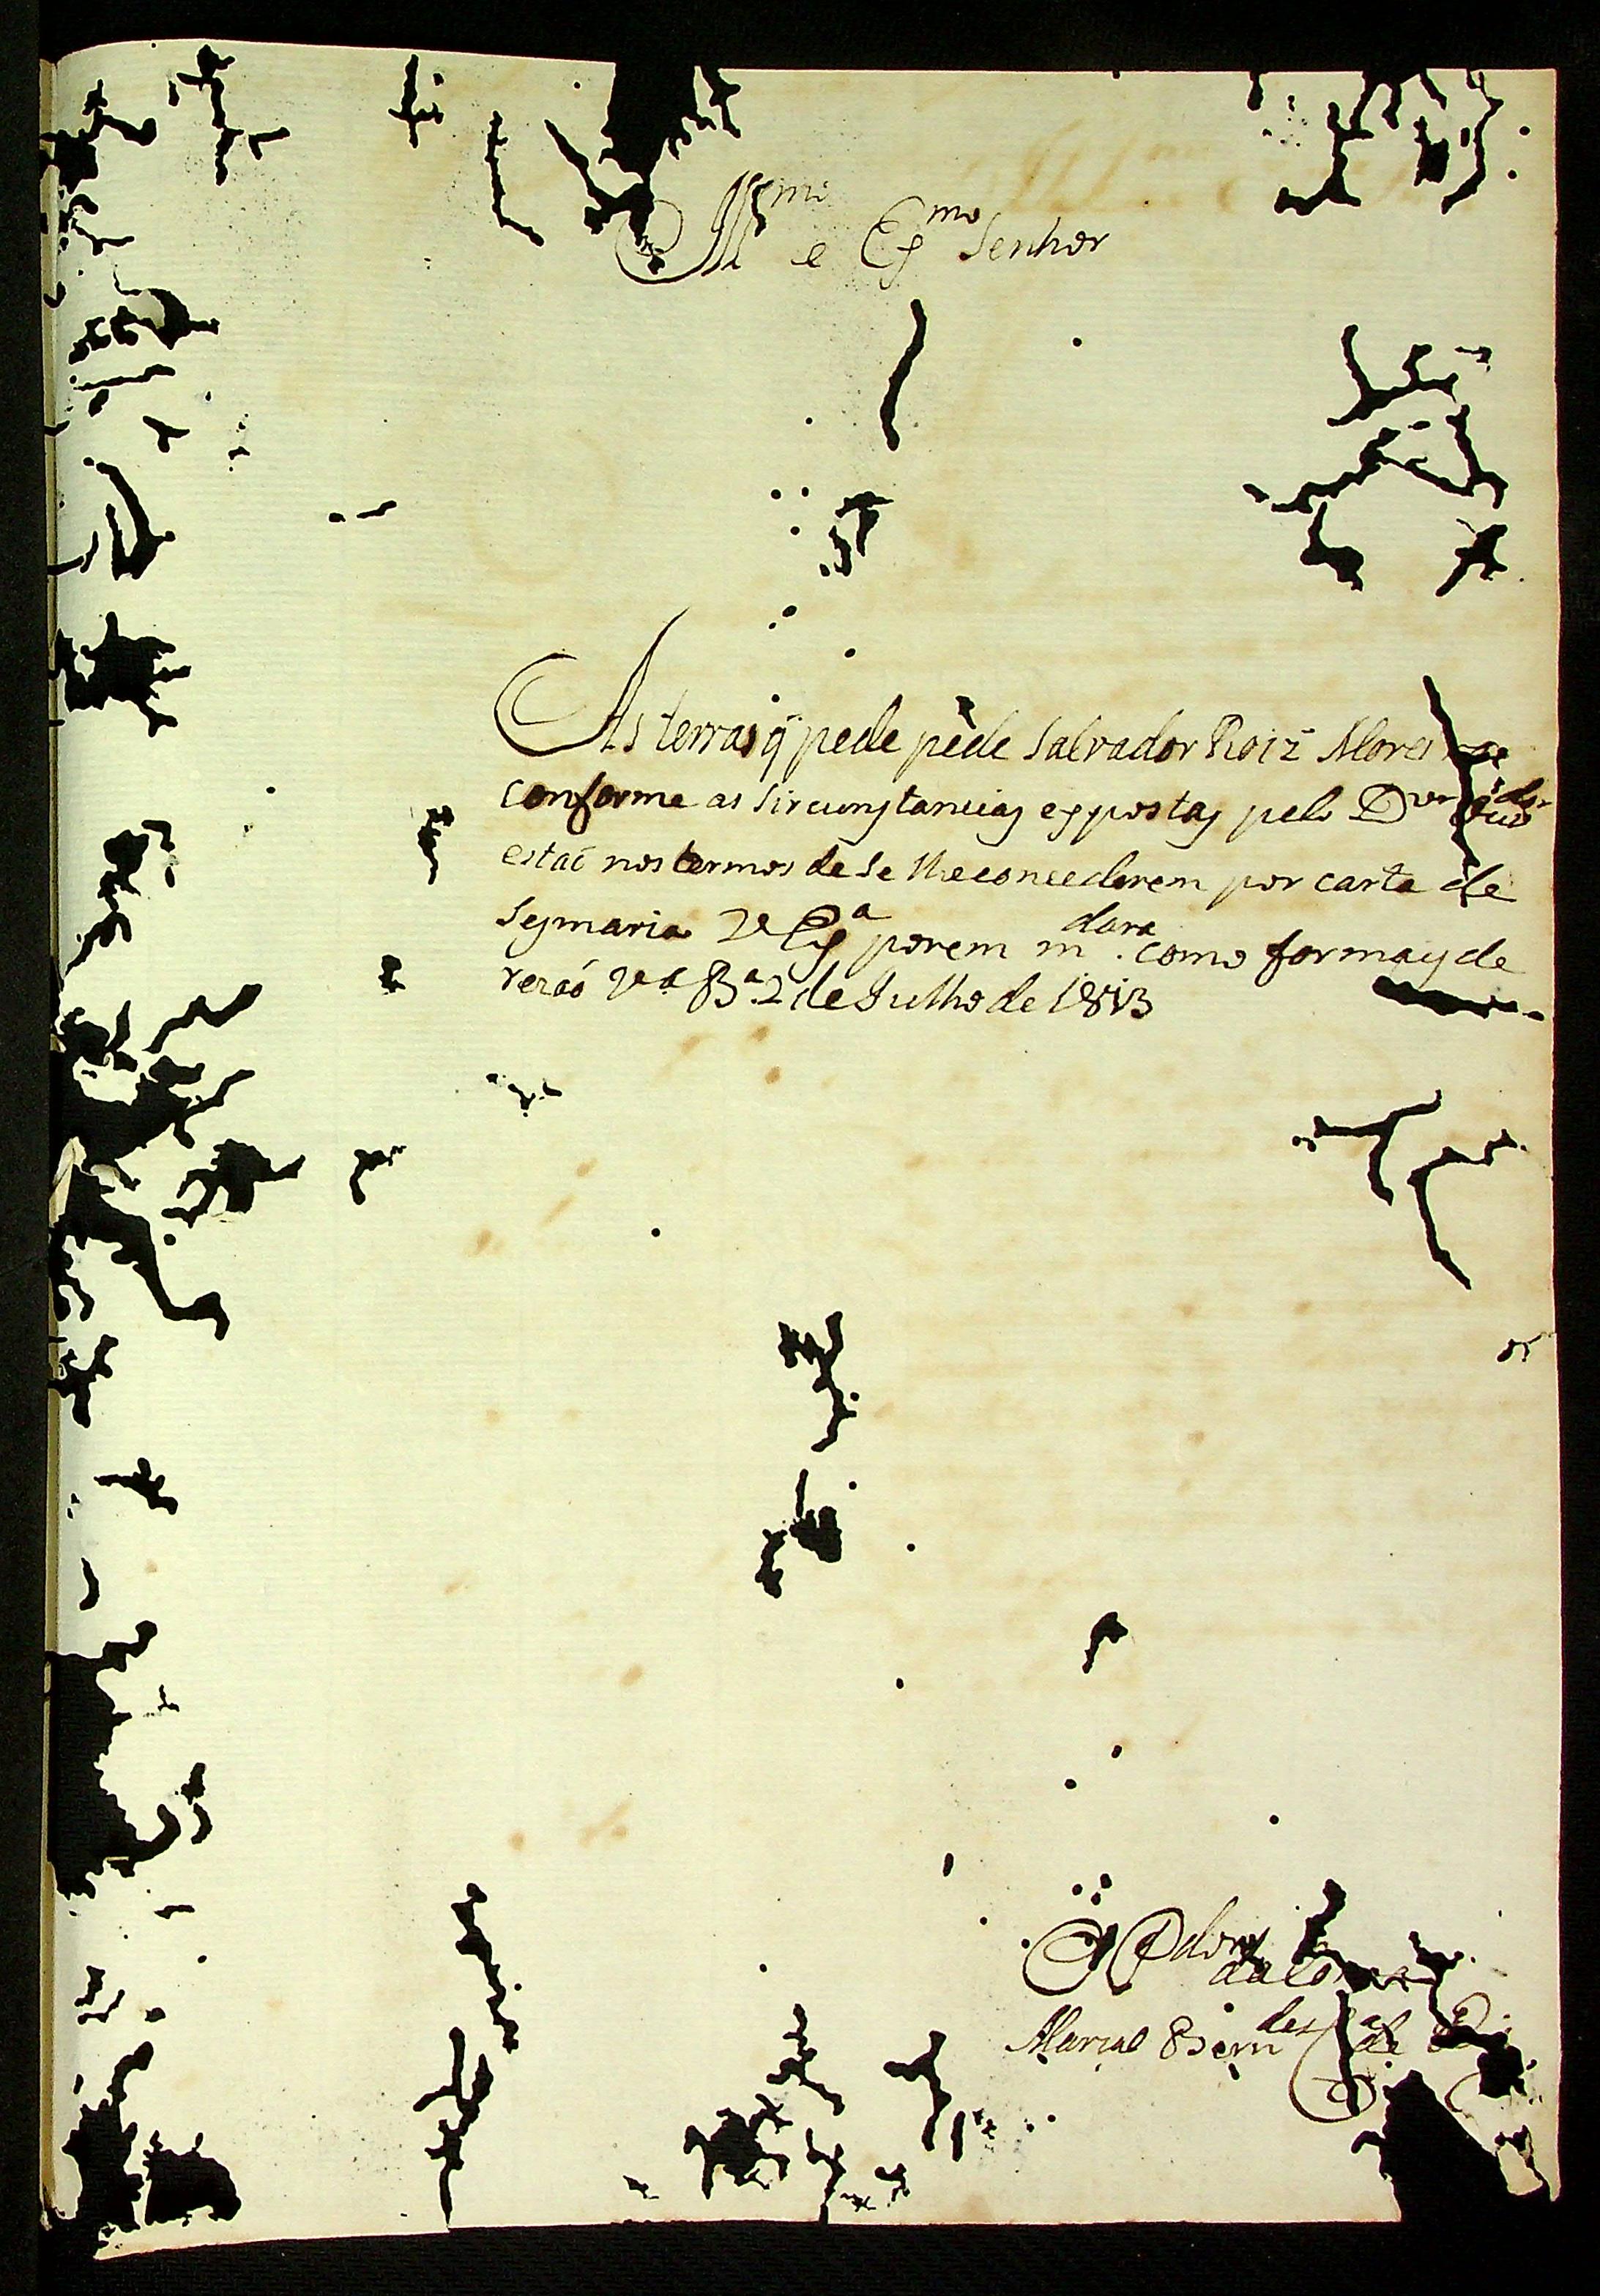 Illmo e Exmo Senhor
As terras q̃ pede pede Salvador Roiz Mores
conforme as Sircunstancias expostas pelo Dor
estaõ nos termos de Se lhe concederem por carta de
Sesmaria Va Exa porem mdara como for mais de
rezaõ Va Ba 2 de Julho de 1813
O P dor da
Marcal Berndes de